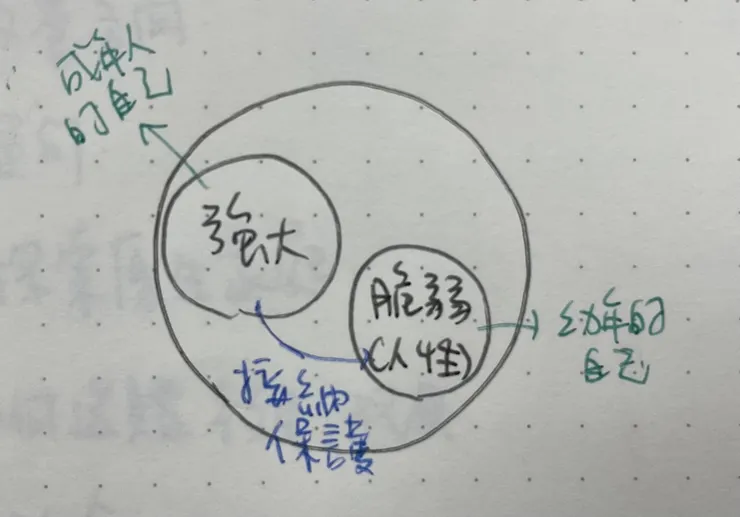 成年人
的自己
強大
脆弱
(人性)
幼年的
自己
接納
保護